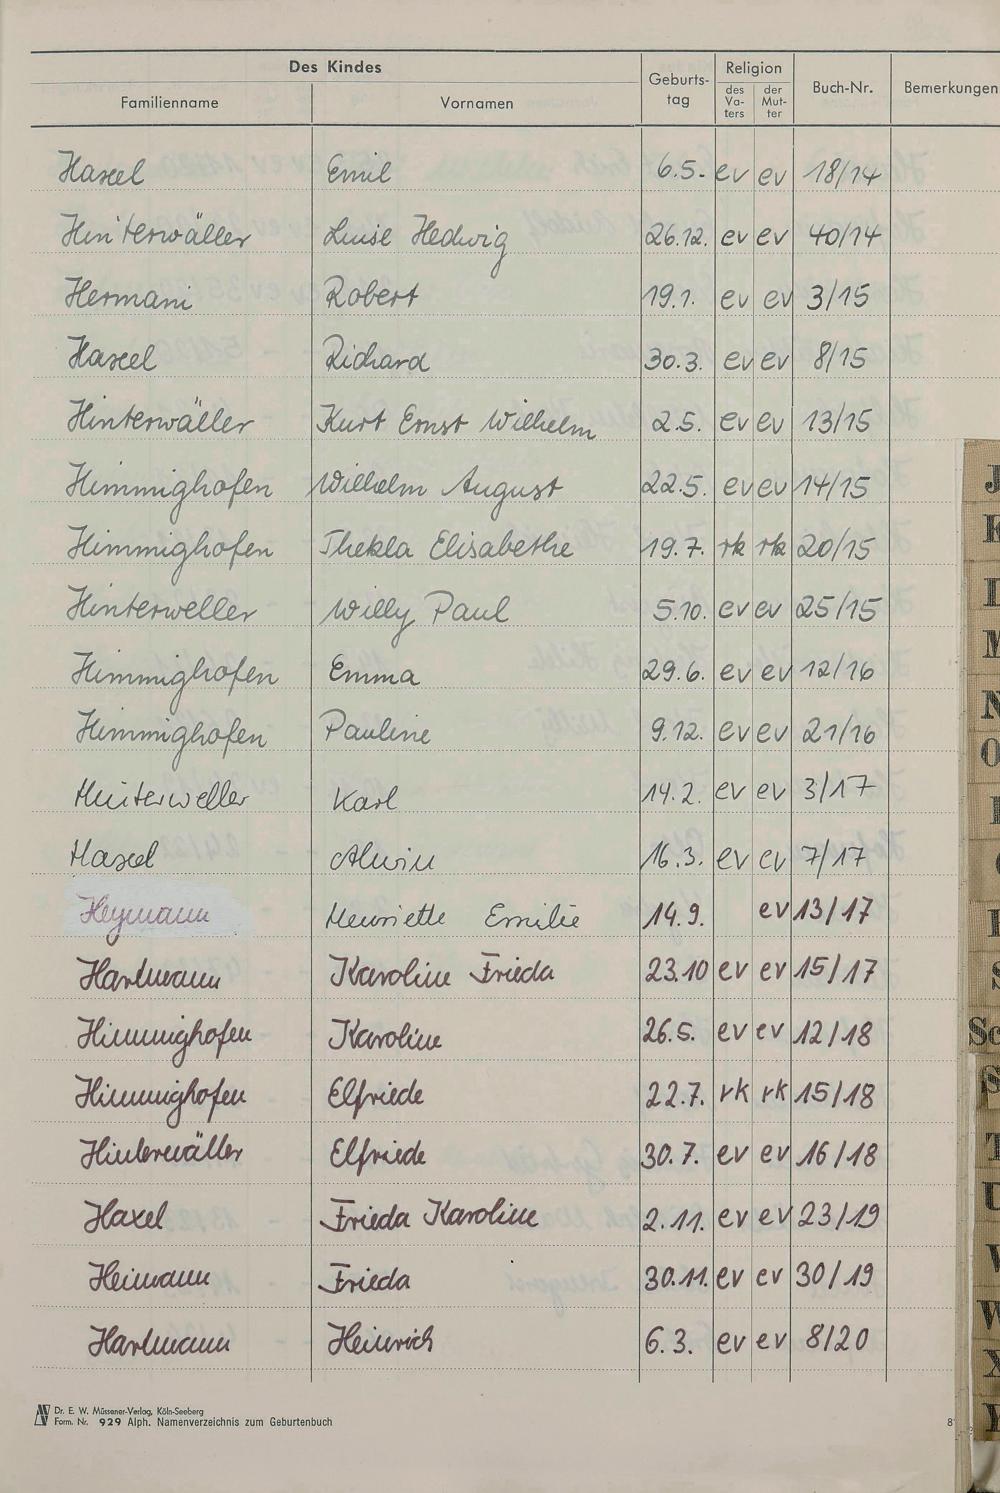 Des Kindes
Geburts-
tag
Religion
Buch-Nr.
Bemerkungen
Familienname
Vornamen
des Va- ters
der Mut- ter
Haxel Emil 6.5. ev ev 18/14
Hinterwäller Luise Hedwig 26.12. ev ev 40/14
Hermani Robert 19.1. ev ev 3/15
Haxel Richard 30.3. ev ev 8/15
Hinterwäller Kurt Ernst Wilhelm 2.5. ev ev 13/15
Himmighofen Wilhelm August 22.5. ev ev 14/15
Himmighofen Thekla Elisabethe 19.7. rk rk 20/15
Hinterweller Willy Paul 5.10. ev ev 25/15
Himmighofen Emma 29.6. ev ev 12/16
Himmighofen Pauline 9.12. ev ev 21/16
Hinterweller Karl 14.2. ev ev 3/17
Haxel Alwin 16.3. ev ev 7/17
Heymann Henriette Emilie 14.9. ev 13/17
Hartmann Karoline Frieda 23.10 ev ev 15/17
Himmighofen Karoline 26.5. ev ev 12/18
Himmighofen Elfriede 22.7. rk rk 15/18
Hinterwäller Elfriede 30.7. ev ev 16/18
Haxel Frieda Karoline 2.11. ev ev 23/19
Heimann Frieda 30.11. ev ev 30/19
Hartmann Heinrich 6.3. ev ev 8/20
Dr. E. W. Müssener-Verlag, Köln-Seeberg
Form. Nr. 929 Alph. Namenverzeichnis zum Geburtenbuch
J
K
L
M
N
O
Sc
T
U
V
W
X
Y